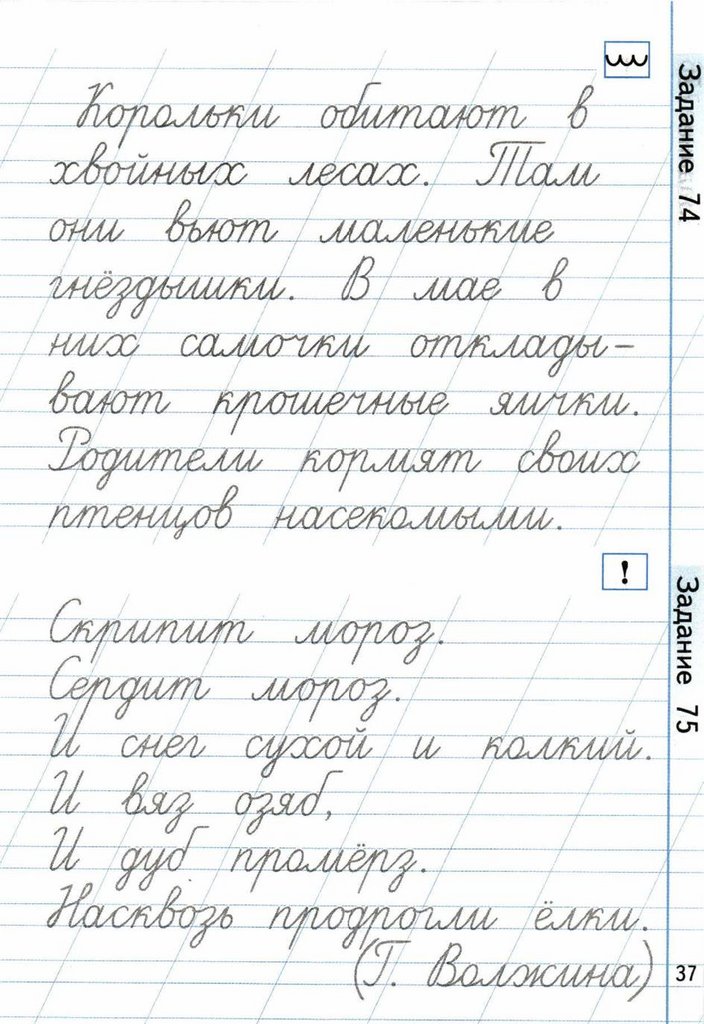 Задание 74
Корольки обитают в
хвойных лесах. Там
они вьют маленькие
гнёздышки. В мае в
них самочки отклады-
вают крошечные яички.
Родители кормят своих
птенцов насекомыми.
!
Задание 75
Скрипит мороз.
Сердит мороз.
И снег сухой и колкий.
И вяз озяб,
И дуб промёрз.
Насквозь продрогли ёлки.
(Г. Волжина)
37